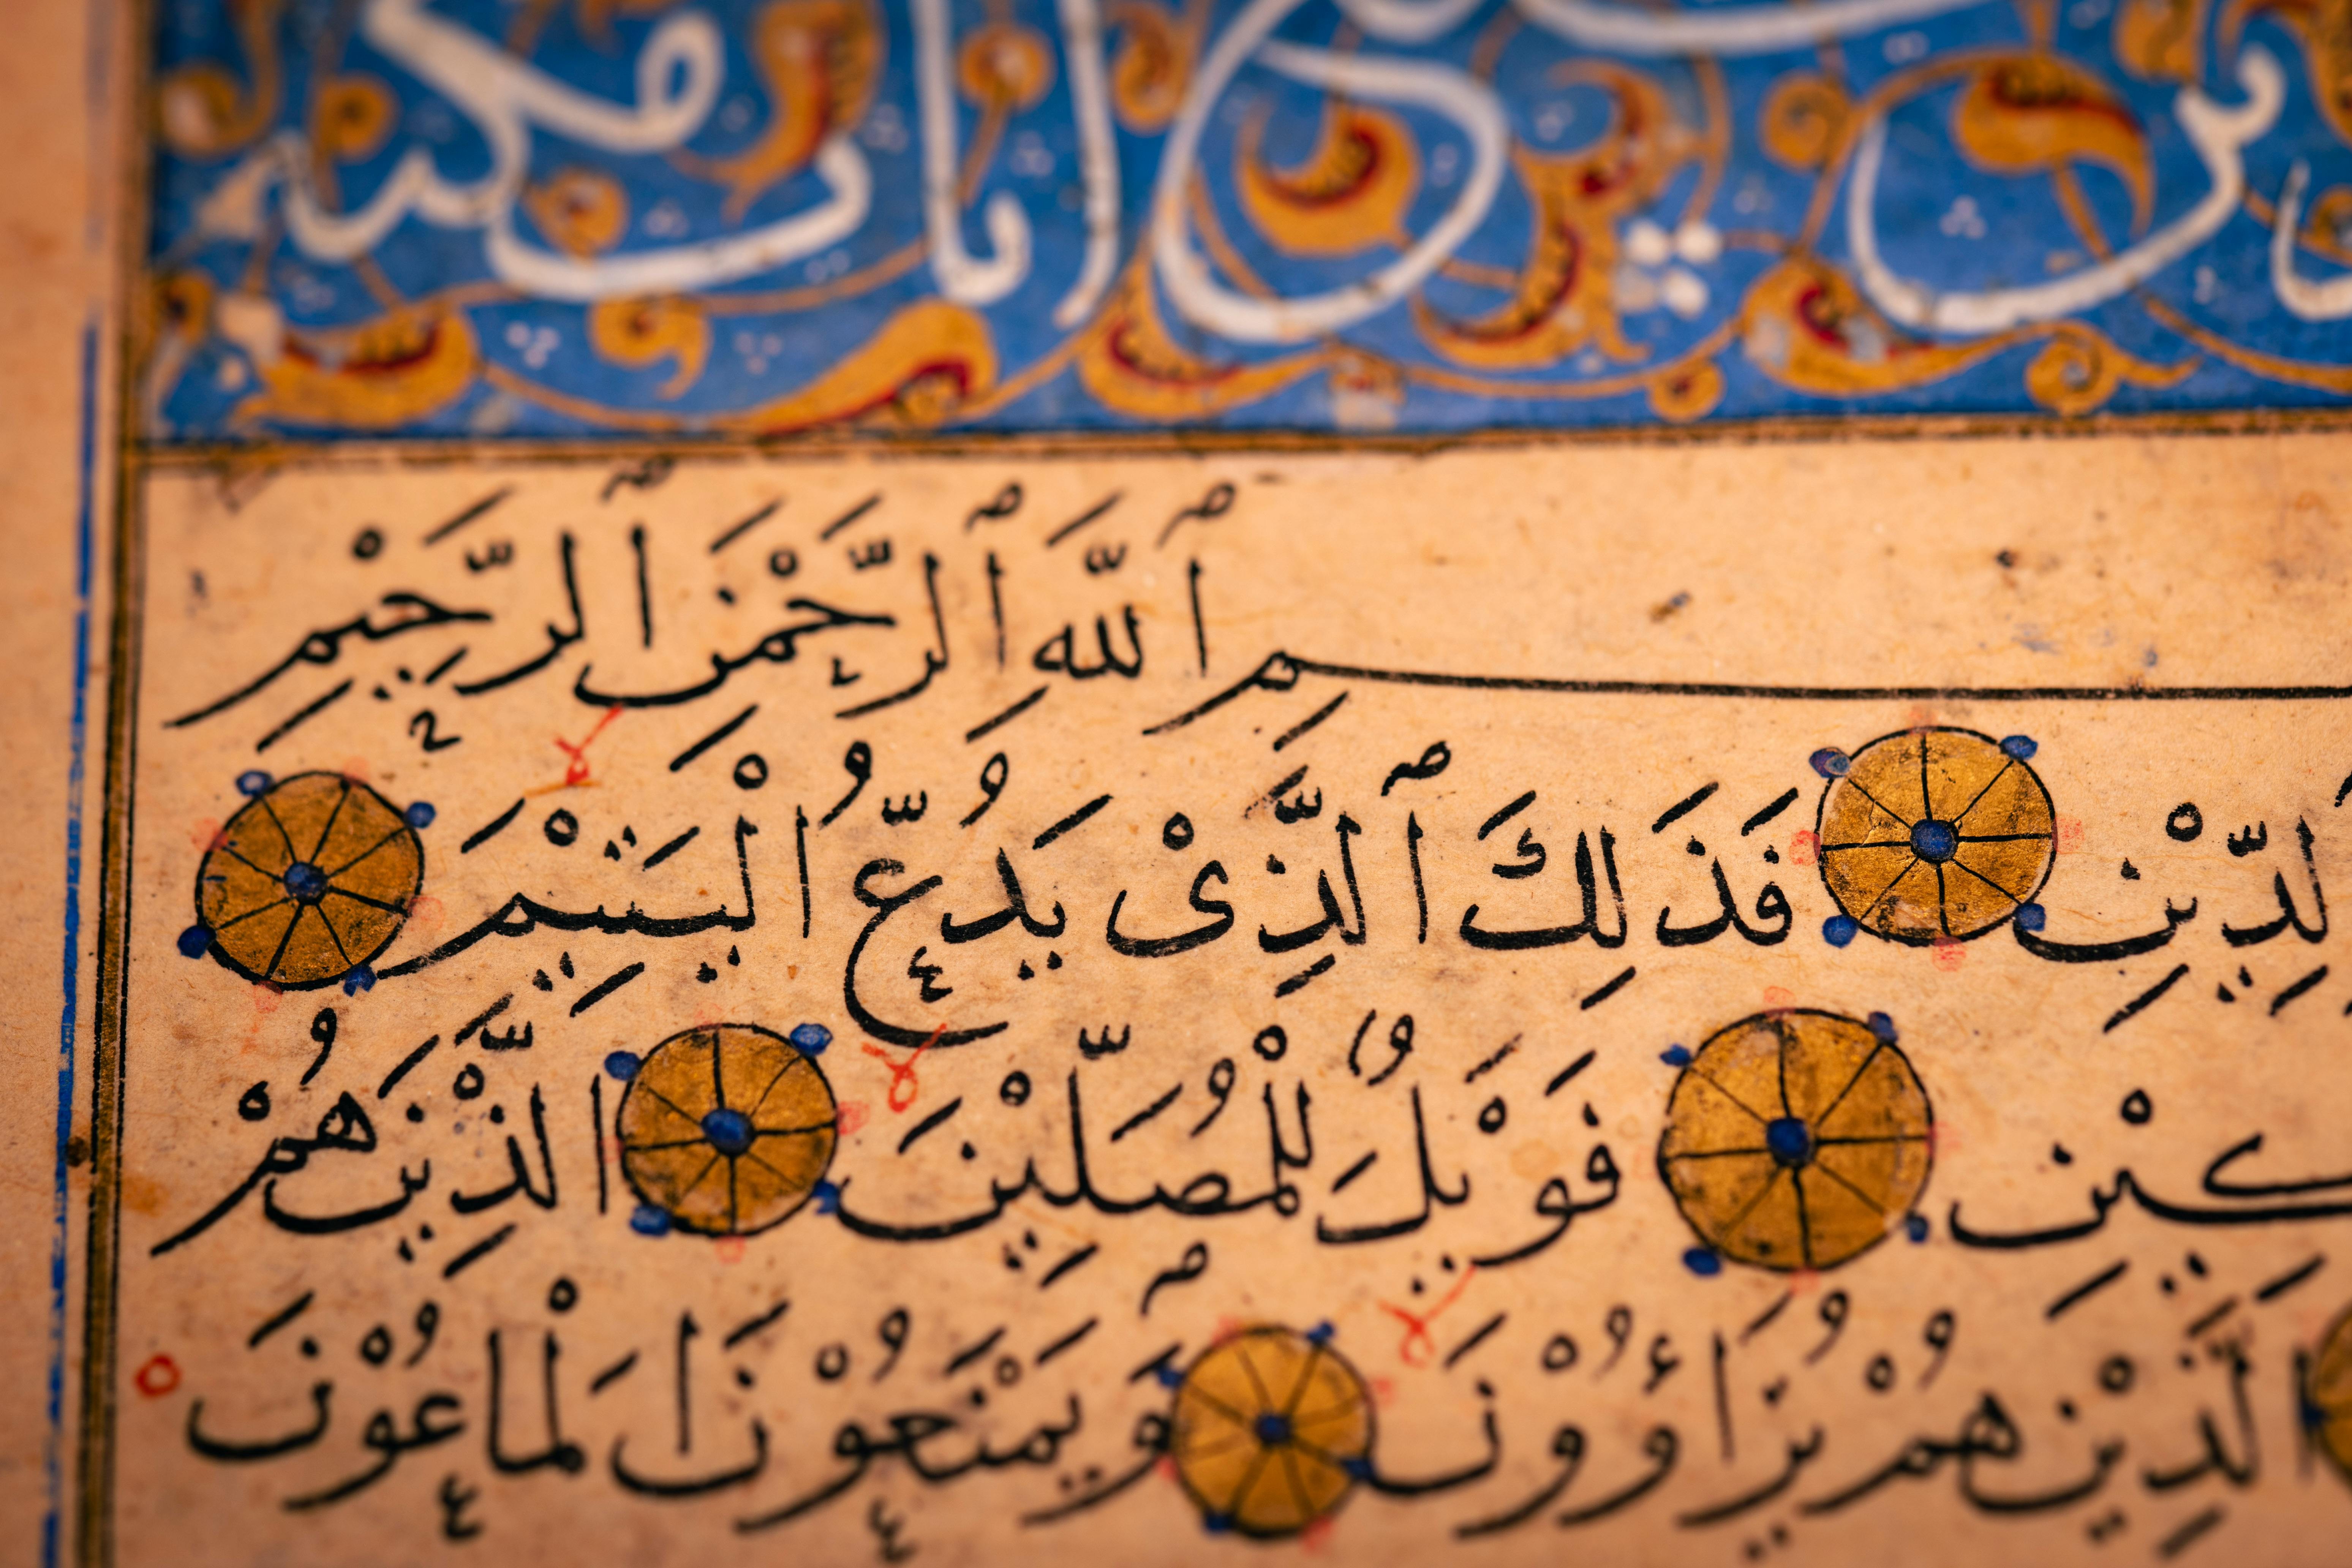 آيات مكية
بِسْمِ ٱللَّهِ ٱلرَّحْمَنِ ٱلرَّحِيْمِ
لدِّيْنِ فَذَلِكَ ٱلَّذِىْ يَدُعُّ الْيَتِيْمَ
كِيْنِ فَوَيْلٌ لِلْمُصَلِّيْنَ الَّذِيْنَ هُمْ
الَّذِيْنَ هُمْ يُرَاءُوْنَ وَيَمْنَعُوْنَ الْمَاعُوْنَ